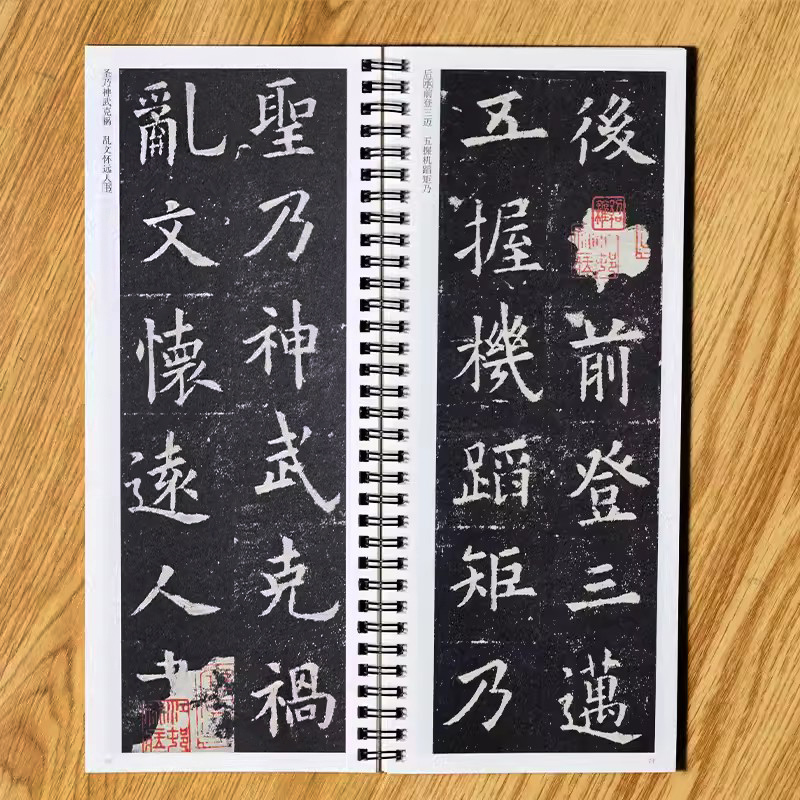 后前登三迈 五握机蹈矩乃
後前登三邁
五握機蹈矩乃
圣乃神武克祸 乱文怀远人书
聖乃神武克禍
亂文懷遠人